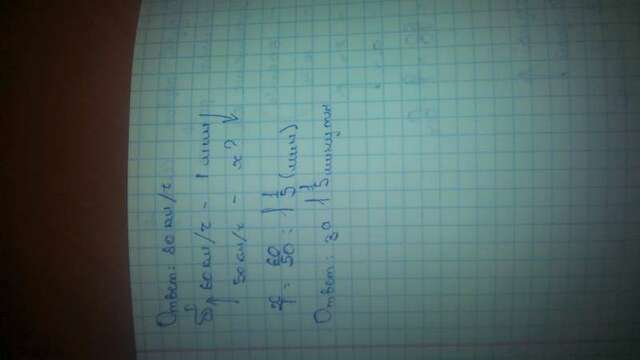 Ответ: 80 км/ч
б) ↑ 60 км/ч - 1 мин ↓
50 км/ч - x?
x/1 = 60/50 = 1 1/5 (мин)
Ответ: за 1 1/5 минуты